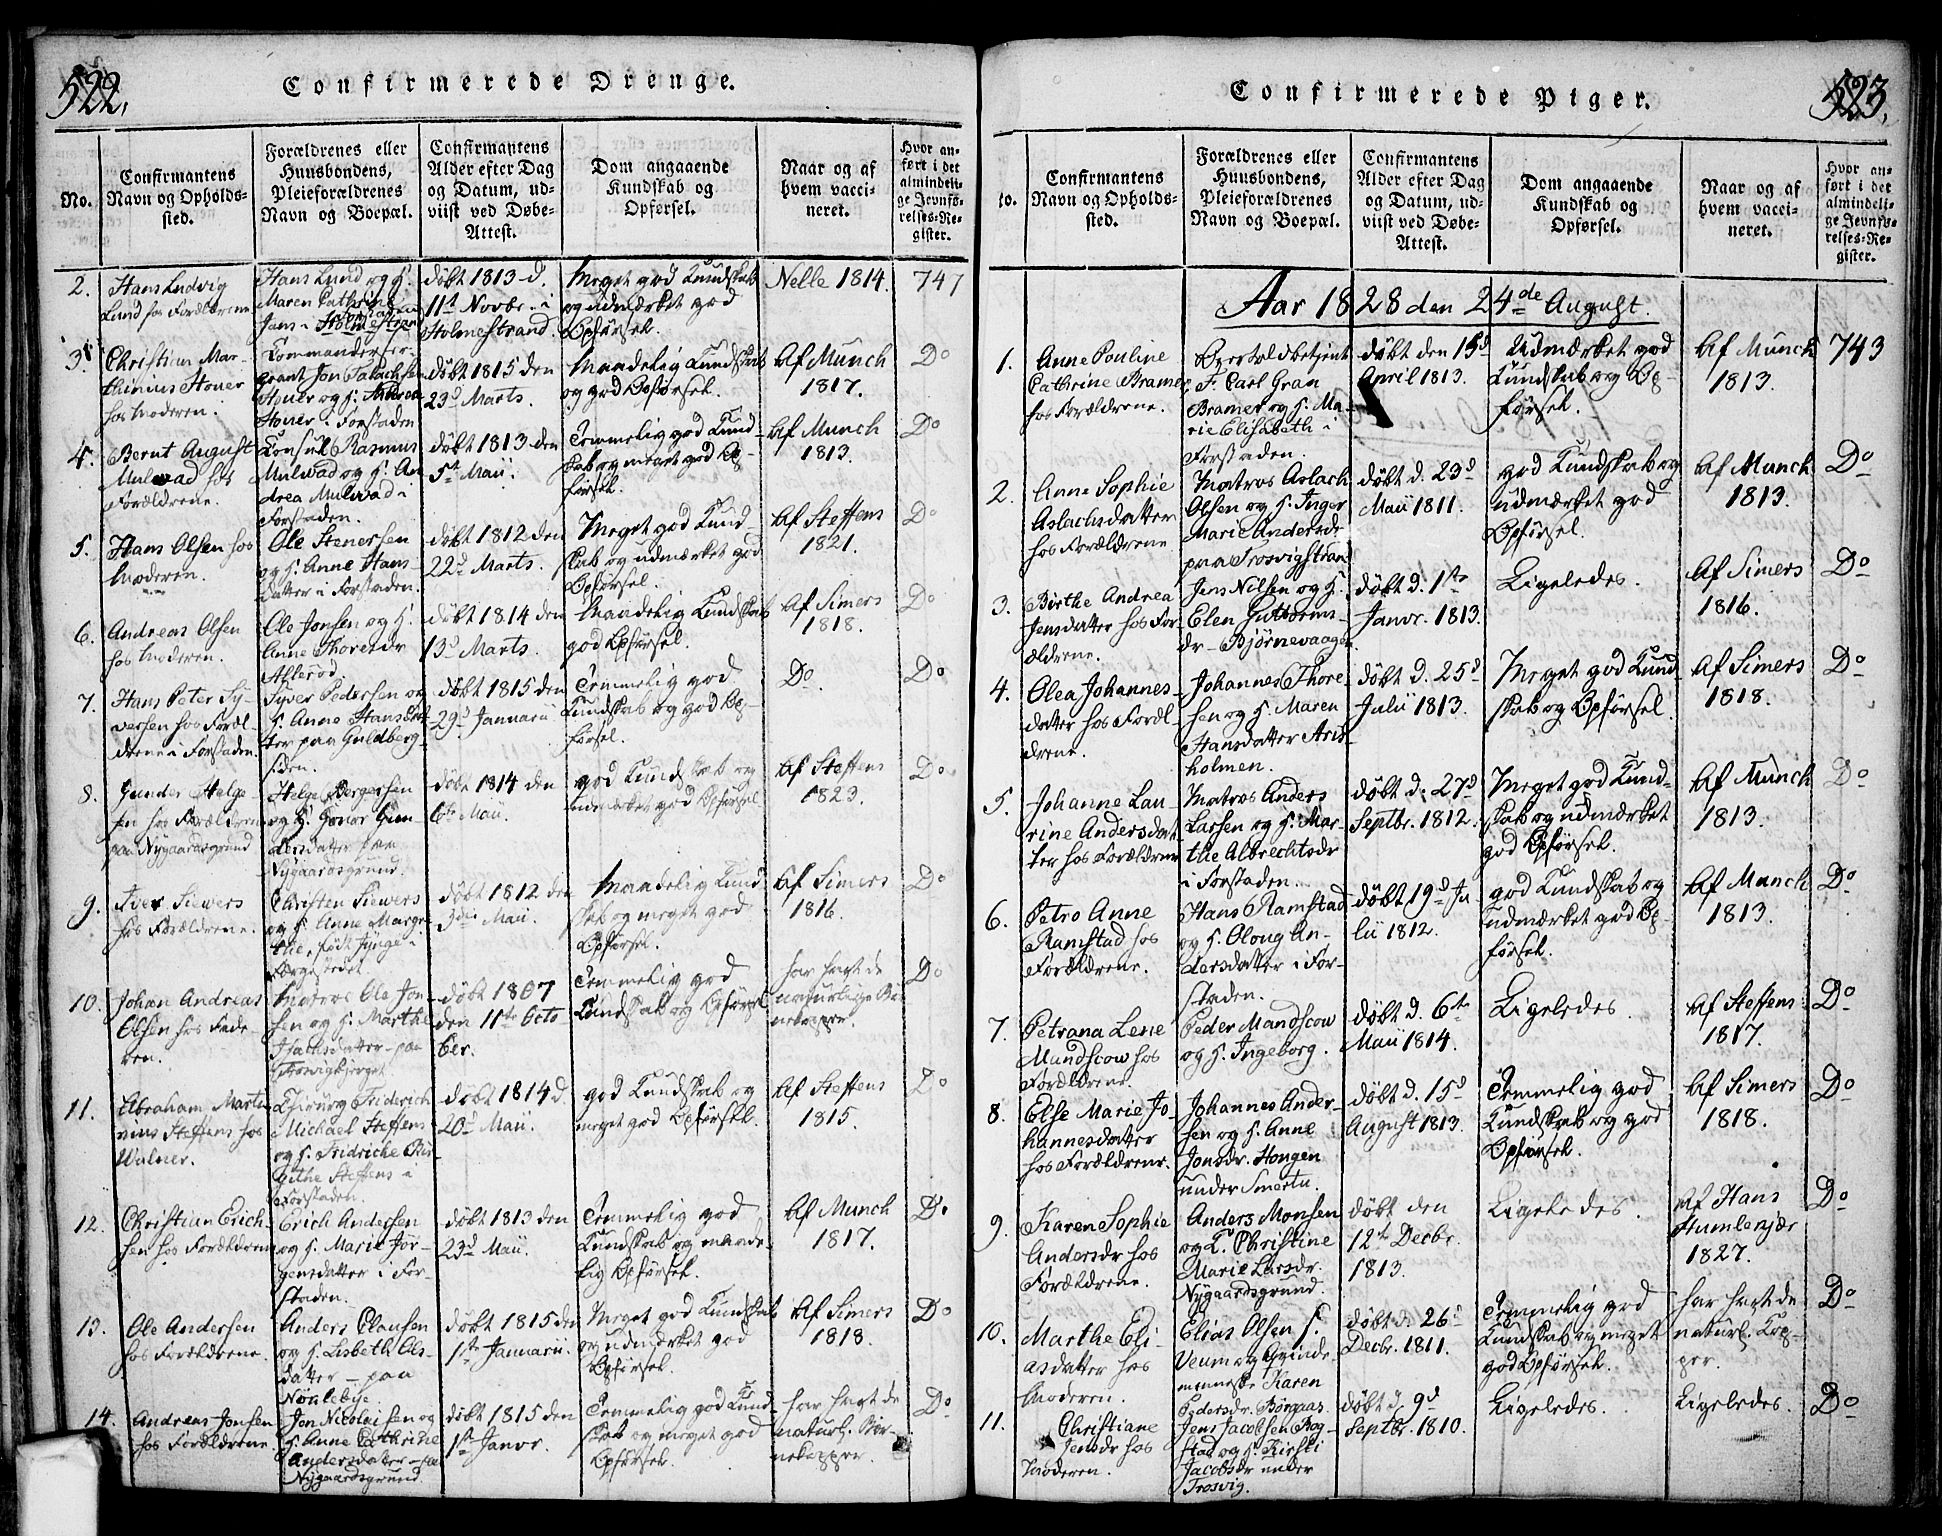 522.
Confirmerede Drenge.
No.
Confirmantens
Navn og Opholds-
sted.
Forældrenes eller
Huusbondens,
Pleieforældrenes
Navn og Boepæl.
Confirmantens
Alder efter Dag
og Datum, ud-
viist ved Døbe-
Attest.
Dom angaaende
Kundskab og
Opførsel.
Naar og af
hvem vacci-
neret.
Hvor an-
ført i det
almindeli-
ge Jevnfø-
relses-Re-
gister.
2.
Hans Ludvig
Lund hos Forældrene
Hans Lund og H.
Maren Cathrine
Jans i Holmestran
døbt 1813 d.
11te Novbr. i
Holmestrand.
Meget god Kundskab
og udmærket god
Opførsel.
Nelle 1814.
747
3.
Christian Mar-
thinus Hover
hos Moderen.
Commandeerser-
geant Jon
Hover og H.
Hover i Forstaden
døbt 1815 den
23d Marts.
Maadelig Kundskab
og god Opførsel.
Af Munch
1817.
Do
4.
Bernt August
Mulvad hos
Forældrene.
Consul Rasmus
Mulvad og H. An
drea Mulvad i
Forstaden.
døbt 1813 den
5te Maii.
Temmelig god Kund-
skab og meget god Op-
førsel.
Af Munch
1813.
Do
5.
Hans Olsen hos
Moderen.
Ole Stenersen
og H. Anne Hans-
datter i Forstaden.
døbt 1812 den
22d Marts.
Meget god Kund-
skab og udmærket god
Opførsel.
Af Steffens
1821.
Do
6.
Andreas Olsen
hos Moderen.
Ole Jonsen og H.
Anne Thoresdr
døbt 1814 den
13d Marts.
Maadelig Kundskab
god Opførsel.
Af Simers
1818.
Do
7.
Hans Peter Sy-
versen hos Foræl
drene i Forstaden.
Syver Pedersen og
H. Anne Hansdat
ter paa Guldberg-
siden.
døbt 1815 den
29d Januarii
Temmelig god
Kundskab og god Op-
førsel.
Do.
Do
8.
Gunder Helge-
sen hos Forældrene
paa Nygaardsgrund
Helge Børgersen
og H. Gonor Gun
dersdatter paa
Nygaardsgrund.
døbt 1814 den
6te Maii.
god Kundskab og
udmærket god Opførsel
Af Steffens
1823.
Do
9.
Iver Siewers
hos Forældrene.
Christen Siewers
og H. Anne Margre
the, født Lynge i
Færgestedet.
døbt 1812 den
3die Maii.
Maadelig Kund
skab og meget god
Opførsel.
Af Simers
1816.
Do
10.
Johan Andreas
Olsen hos Fade-
ren.
Matros Ole Jon-
sen og H. Marthe
Isachsdatter paa
døbt 1807
den 11te Octo
ber.
Temmelig god
Kundskab og Opførsel
har havt de
naturlige Bør
nekopper.
Do
11.
Abraham Marti
nius Steffens hos
Chirurg Friderich
Michael Steffens
og H. Fridriche Bir-
githe Steffens i
Forstaden.
døbt 1814 d.
20d Maii.
god Kundskab og
meget god Opførsel.
Af Steffens
1815.
Do
12.
Christian Erich-
sen hos Forældrene
Erich Andersen
og H. Marie Jør-
gensdatter i For-
staden.
døbt 1813 den
23d Maii.
Temmelig god
Kundskab og maade-
lig Opførsel.
Af Munch
1817.
Do
13.
Ole Andersen
hos Forældrene.
Anders Clausen
og H. Lisbeth Ols-
datter - paa
Nørlebye.
døbt 1815 den
1ste Januarii.
Meget god Kundskab
og udmærket god
Opførsel.
Af Simers
1818.
Do
14.
Andreas Jonsen
hos Forældrene
Jon Nicolaisen og
H. Anne Cathrine
Andersdatter - paa
Nygaardsgrund
døbt 1815 den
1ste Janvr.
Temmelig god Kund-
skab og meget god
Opførsel.
har havt de
naturl. Bør-
nekopper.
Do
523.
Confirmerede Piger.
to.
Confirmantens
Navn og Opholds-
sted.
Forældrenes eller
Huusbondens,
Pleieforældrenes
Navn og Boepæl.
Confirmantens
Alder efter Dag
og Datum, ud-
viist ved Døbe-
Attest.
Dom angaaende
Kundskab og
Opførsel.
Naar og af
hvem vacci-
neret.
Hvor an-
ført i det
almindeli-
ge Jevnfø-
relses-Re-
gister.
Aar 1828 den 24de August.
1.
Anne Pouline
Cathrine Bramer
hos Forældrene.
Overtoldbetjent
F. Carl Gran
Bramer og H. Ma-
rie Elisabeth i
Forstaden.
døbt den 15d
April 1813.
Udmærket god
Kundskab og Op-
førsel.
Af Munch
1813.
743
2.
Anne Sophie
Aslachsdatter
hos Forældrene
Matros Aslach
Olsen og H. Inger
Marie Andersdr
paa Trosvigstran
døbt d. 23d
Maii 1811.
god Kundskab og
udmærket god
Opførsel.
Af Munch
1813.
Do
3.
Birthe Andrea
Jensdatter hos For-
ældrene.
Jens Nilsen og H.
Elen Guttorms-
dr - Bjørnevaagen
døbt d. 1ste
Janvr. 1813.
Ligeledes.
Af Simers
1816.
Do
4.
Olea Johannes-
datter hos Foræl-
drene.
Johannes Thore-
sen og H. Maren
Hansdatter Aris-
holmen.
døbt d. 25d
Julii 1813.
Meget god Kund
skab og Opførsel.
Af Simers
1818.
Do
5.
Johanne Lau-
rine Andersdat
ter hos Forældrene
Matros Anders
Larsen og H. Mar-
the Albrechtsdr
i Forstaden.
døbt d. 27d
Septbr. 1812.
Meget god Kund-
skab og udmærket
god Opførsel.
Af Munch
1813.
Do
6.
Petro Anne
Ramstad hos
Forældrene.
Hans Ramstad
og H. Oloug An-
dersdatter i For-
staden.
døbt 19d Ju
lii 1812.
god Kundskab og
udmærket god Op-
førsel.
Af Munch
1813.
Do
7.
Petrana Lene
Mandscow hos
Forældrene.
Peder Mandscow
og H. Ingeborg.
døbt d. 6te
Maii 1814.
Ligeledes.
Af Steffens
1817.
Do
8.
Else Marie Jo
hannesdatter
hos Forældrene.
Johannes Ander-
sen og H. Anne
Jonsdr. Hougen
under Smertu.
døbt d. 15d
August 1813.
Temmelig god
Kundskab og god
Opførsel.
Af Simers
1818.
Do
9.
Karen Sophie
Andersdr hos
Forældrene.
Anders Monsen
og K. Christine
Marie Larsdr.
Nygaardsgrund.
døbt den
12te Decbr.
1813.
Ligeledes.
Af Hans
Humlekjær
1827.
Do
10.
Marthe Eli-
asdatter hos
Moderen.
Elias Olsen H.
Veum og Qvinde-
menneske Karen
Pedersdr. Borgaas
døbt d. 26d
Decbr. 1811.
Temmelig god
Kundskab og meget
god Opførsel.
har havt de
naturl. Kop-
per.
Do
11.
Christiane
Jensdr hos
Moderen.
Jens Jacobsen Bog-
stad og H. Kirsti
Jacobsdr under
Trosvig.
døbt d. 9d
Septbr. 1810.
Ligeledes.
Ligeledes.
Do